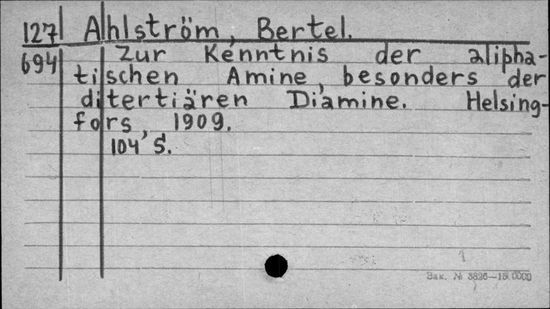 127 Ahlström, Bertel.
694 Zur Kenntnis der alipha-
tischen Amine, besonders der
ditertiären Diamine. Helsing-
fors, 1909.
104 S.
Зак. №